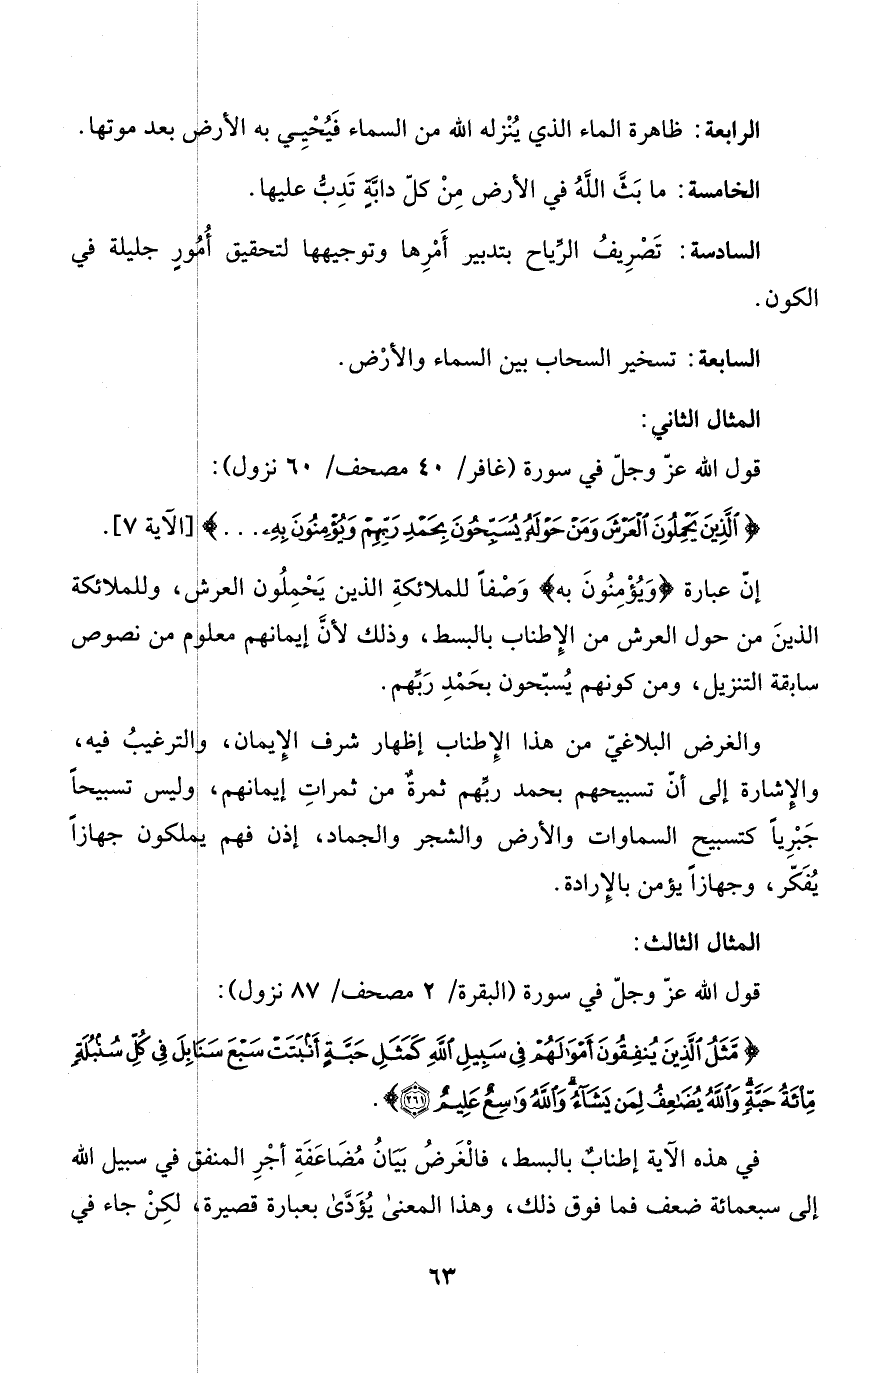 الرابعة: ظاهرة الماء الذي يُنْزله الله من السماء فَيُحْيِـي به الأرض بعد موتها.
الخامسة: ما بَثَّ اللَّهُ في الأرض مِنْ كلّ دابَّةٍ تَدِبُّ عليها.
السادسة: تَصْرِيفُ الرِّياح بتدبير أَمْرِها وتوجيهها لتحقيق أُمُورٍ جليلة في
الكون.
السابعة: تسخير السحاب بين السماء والأرْض.
المثال الثاني:
قول الله عزّ وجلّ في سورة (غافر/ ٤٠ مصحف/ ٦٠ نزول):
﴿ٱلَّذِينَ يَحْمِلُونَ ٱلْعَرْشَ وَمَنْ حَوْلَهُۥ يُسَبِّحُونَ بِحَمْدِ رَبِّهِمْ وَيُؤْمِنُونَ بِهِۦ. . . .﴾ [الآية ٧].
إنّ عبارة ﴿وَيُؤْمِنُونَ به﴾ وَصْفاً للملائكةِ الذين يَحْمِلُون العرش، وللملائكة
الذينَ من حول العرش من الإِطناب بالبسط، وذلك لأنَّ إيمانهم معلوم من نصوص
سابقة التنزيل، ومن كونهم يُسبّحون بحَمْدِ رَبِّهم.
والغرض البلاغيّ من هذا الإِطناب إظهار شرف الإِيمان، والترغيبُ فيه،
والإِشارة إلى أنّ تسبيحهم بحمد ربِّهم ثمرةٌ من ثمراتِ إيمانهم، وليس تسبيحاً
جَبْرِياً كتسبيح السماوات والأرض والشجر والجماد، إذن فهم يملكون جهازاً
يُفَكّر، وجهازاً يؤمن بالإِرادة.
المثال الثالث:
قول الله عزّ وجلّ في سورة (البقرة/ ٢ مصحف/ ٨٧ نزول):
﴿مَّثَلُ ٱلَّذِينَ يُنفِقُونَ أَمْوَٰلَهُمْ فِي سَبِيلِ ٱللَّهِ كَمَثَلِ حَبَّةٍ أَنۢبَتَتْ سَبْعَ سَنَابِلَ فِي كُلِّ سُنۢبُلَةٍ
مِّائَةُ حَبَّةٍۗ وَٱللَّهُ يُضَٰعِفُ لِمَن يَشَآءُۗ وَٱللَّهُ وَٰسِعٌ عَلِيمٌ ٢٦١﴾.
في هذه الآية إطنابٌ بالبسط، فالْغَرضُ بَيَانُ مُضَاعَفَةِ أجْرِ المنفق في سبيل الله
إلى سبعمائة ضعف فما فوق ذلك، وهذا المعنىٰ يُؤَدَّىٰ بعبارة قصيرة، لكِنْ جاء في
٦٣